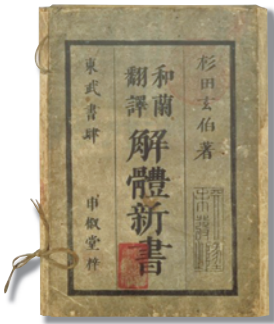 杉田玄伯著
和蘭
翻譯
解體新書
東武書肆
申椒堂梓